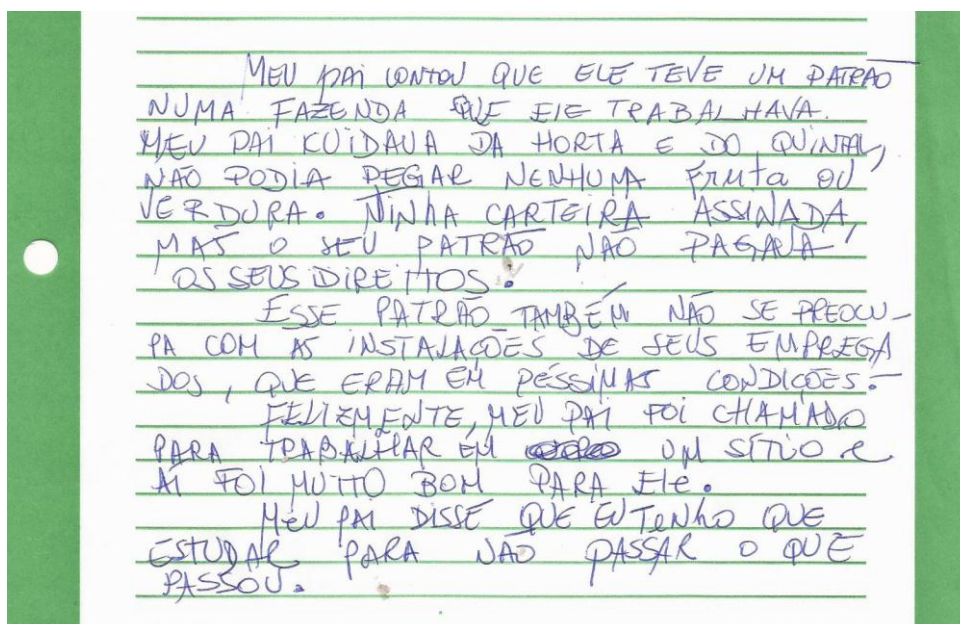 MEU PAI CONTOU QUE ELE TEVE UM PATRÃO
NUMA FAZENDA QUE ELE TRABALHAVA.
MEU PAI CUIDAVA DA HORTA E DO QUINTAL,
NÃO PODIA PEGAR NENHUMA FRUTA OU
VERDURA. TINHA CARTEIRA ASSINADA,
MAS O SEU PATRÃO NÃO PAGAVA
OS SEUS DIREITOS.
ESSE PATRÃO TAMBÉM NÃO SE PREOCU-
PA COM AS INSTALAÇÕES DE SEUS EMPREGA
DOS, QUE ERAM EM PÉSSIMAS CONDIÇÕES.
FELIZMENTE, MEU PAI FOI CHAMADO
PARA TRABALHAR EM UM SÍTIO E
AÍ FOI MUITO BOM PARA ELE.
MEU PAI DISSE QUE EU TENHO QUE
ESTUDAR PARA NÃO PASSAR O QUE
PASSOU.